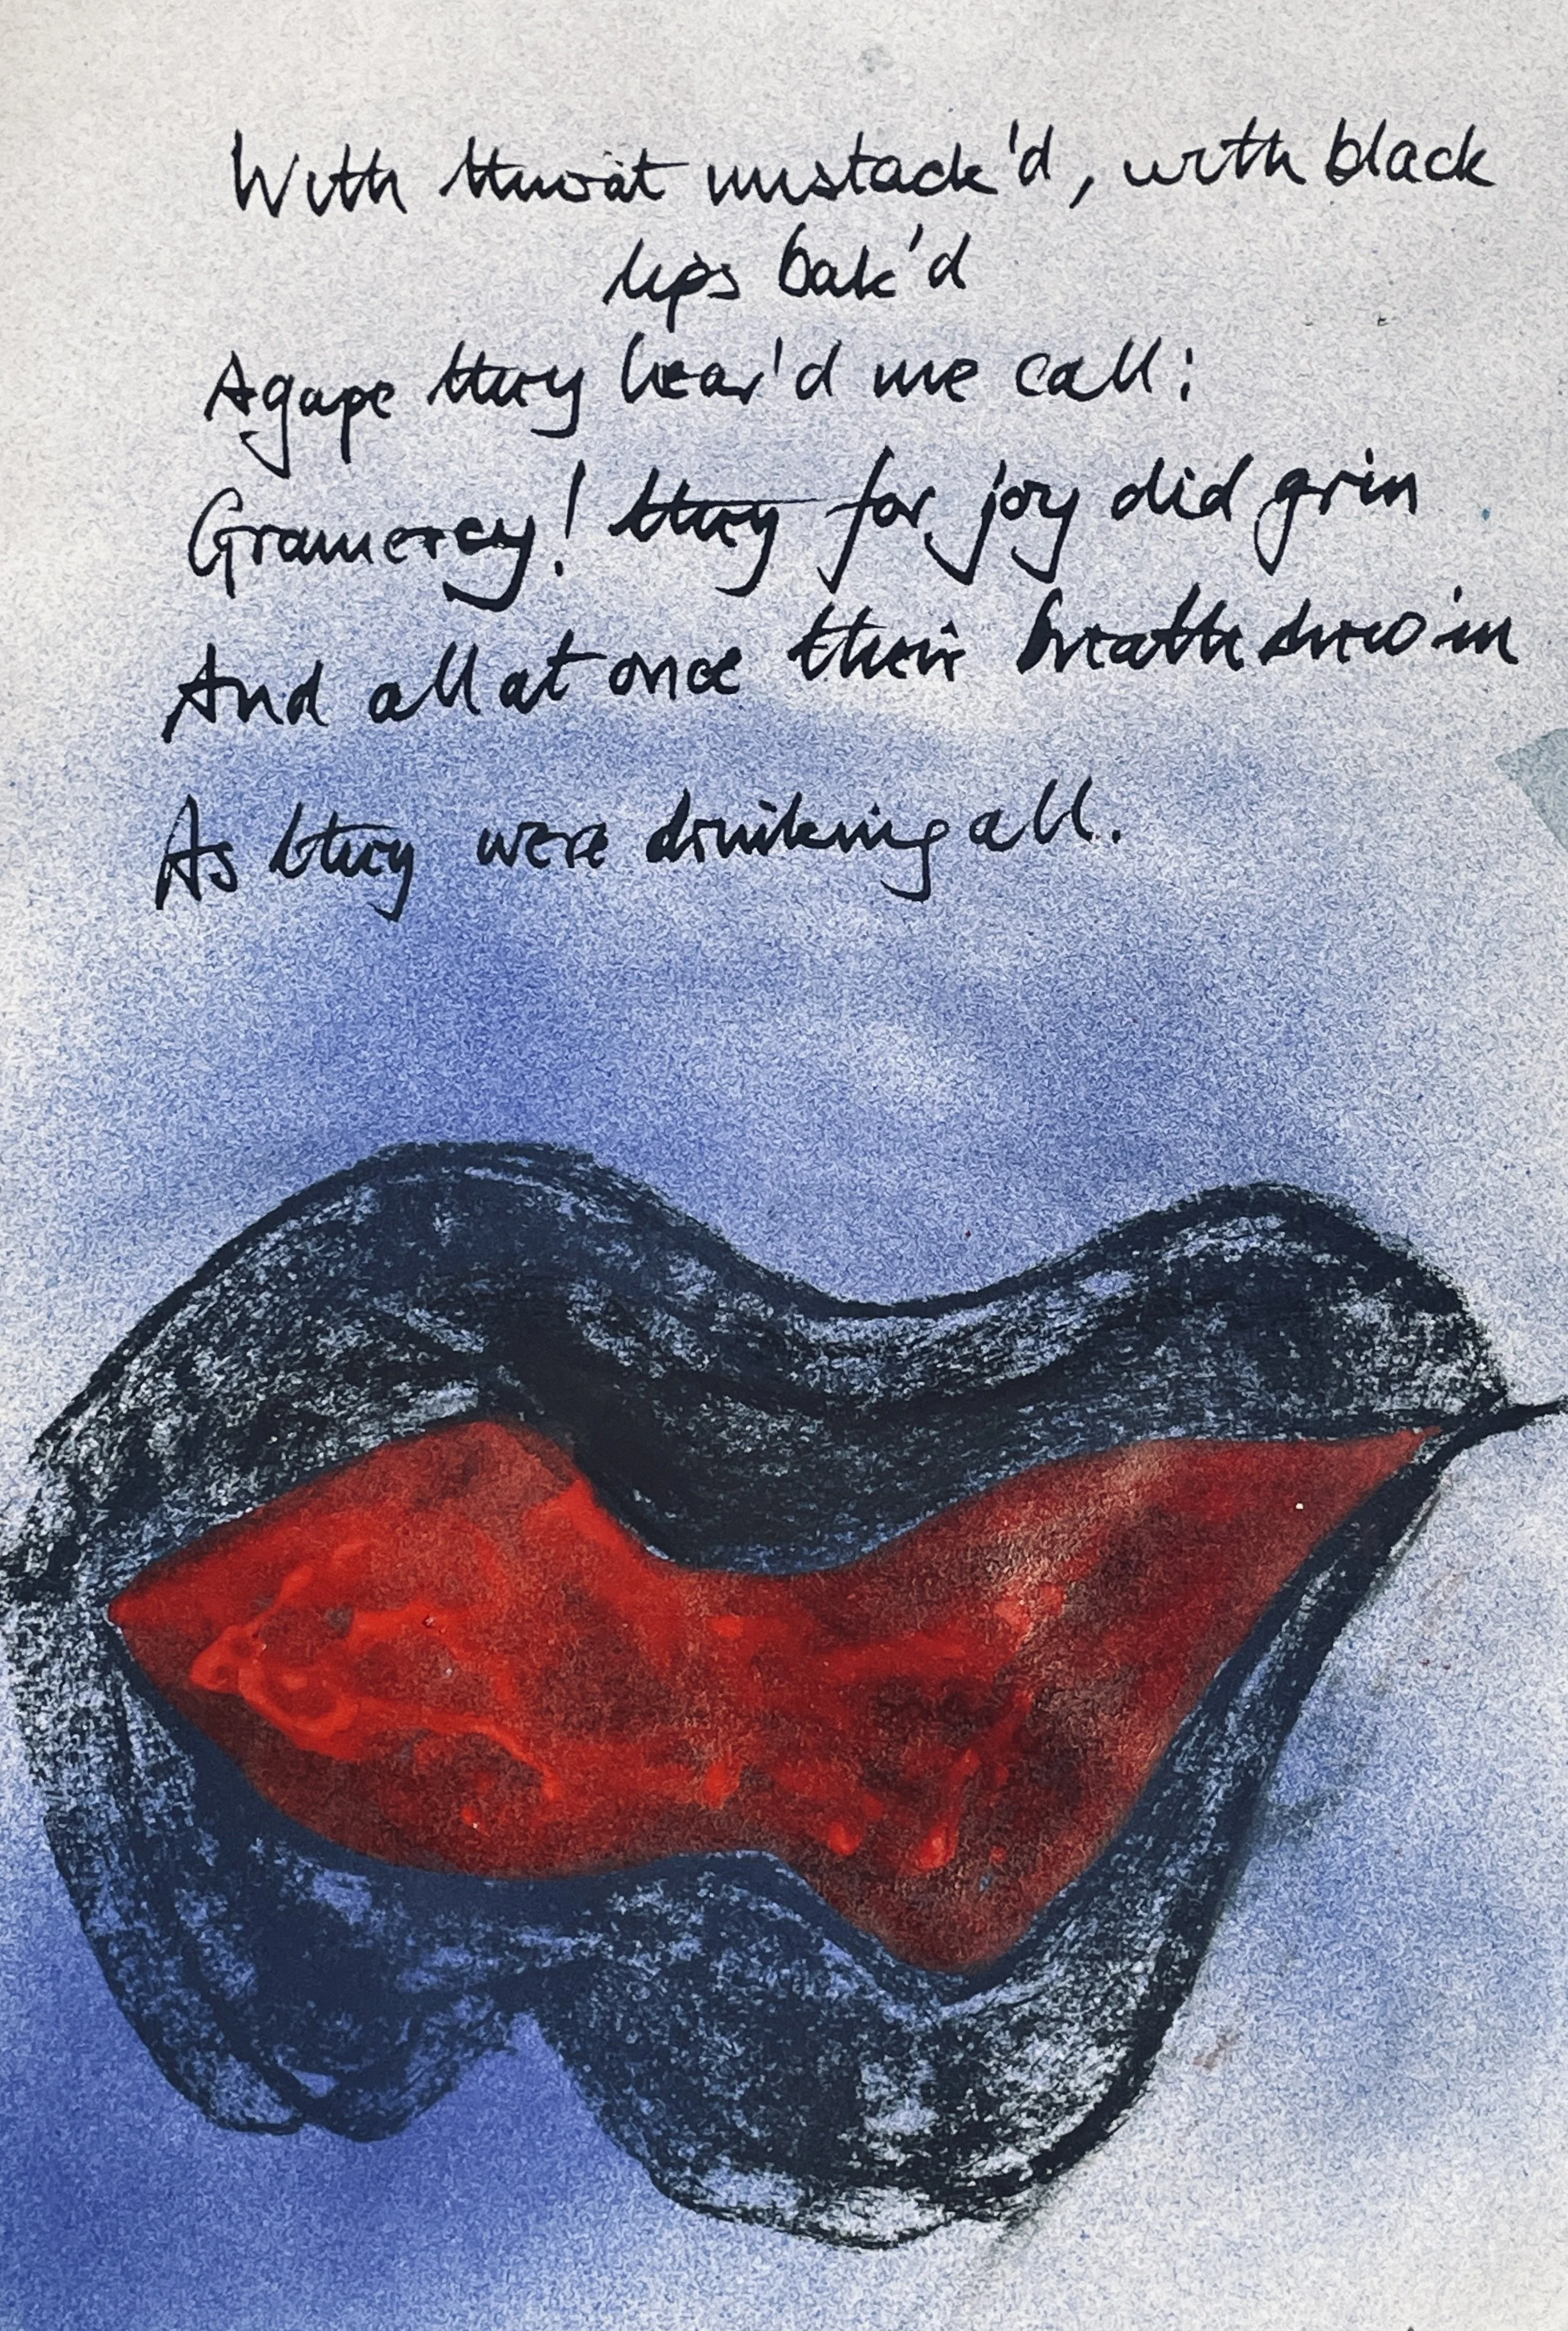 With throat unstack'd, with black
lips bak'd
Agape they hear'd me call:
Gramercy! they for joy did grin
And all at once their breath drew in
As they were drinking all.